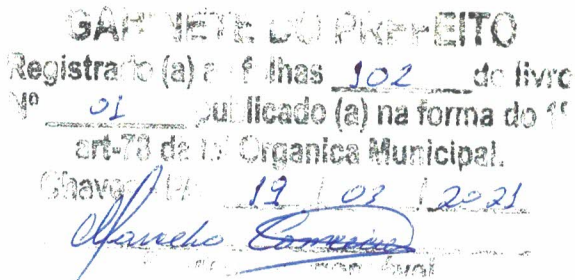 GABINETE DO PREFEITO
Registrado (a) a folhas 102 do livro
Nº 01 publicado (a) na forma do 1º
art-78 da Lei Organica Municipal.
Chaves 19 / 03 / 2021